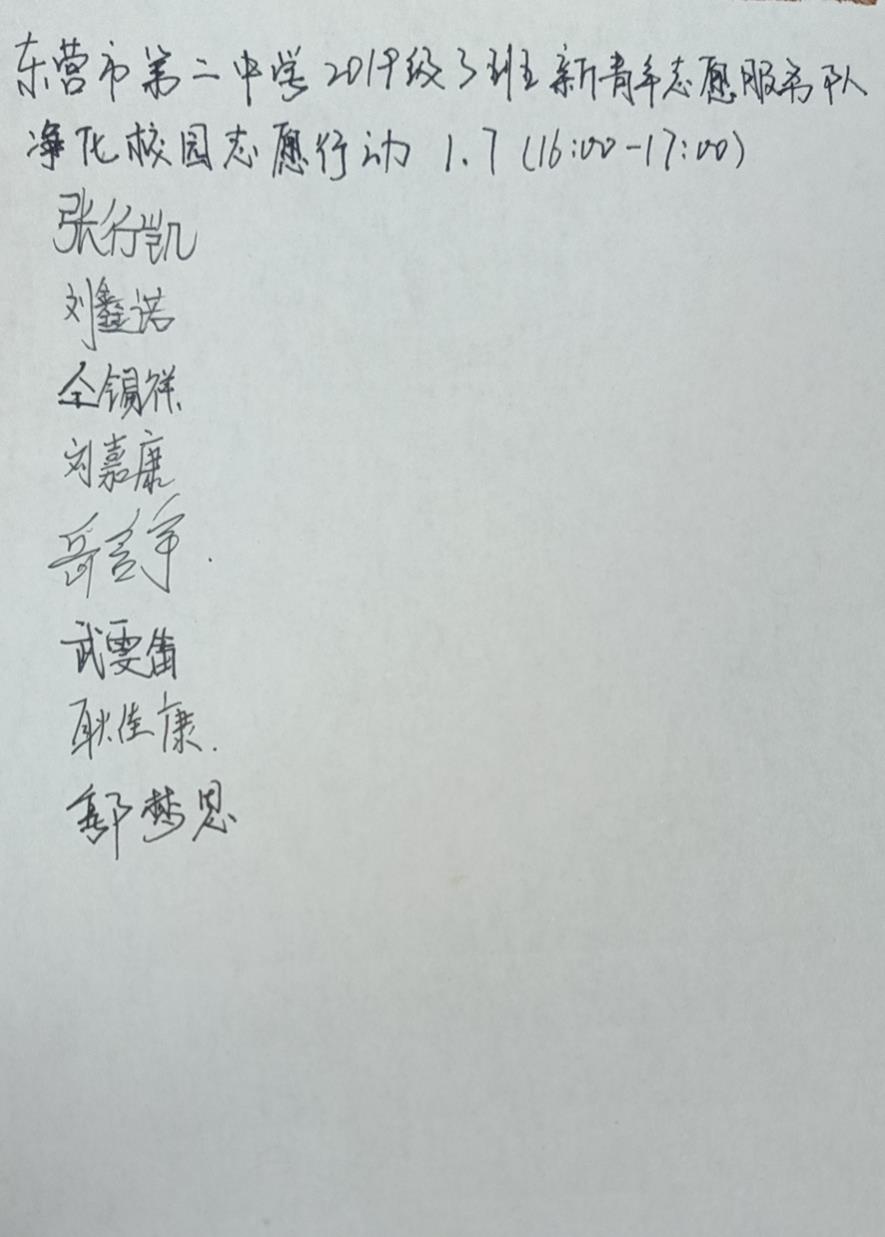 东营市第二中学2019级3班新青年志愿服务队
净化校园志愿行动 1.7(16:00-17:00)
张行凯
刘鑫诺
仝锡祥
刘嘉康
岳言争.
武雯笛
耿佳康.
鄢梦恩